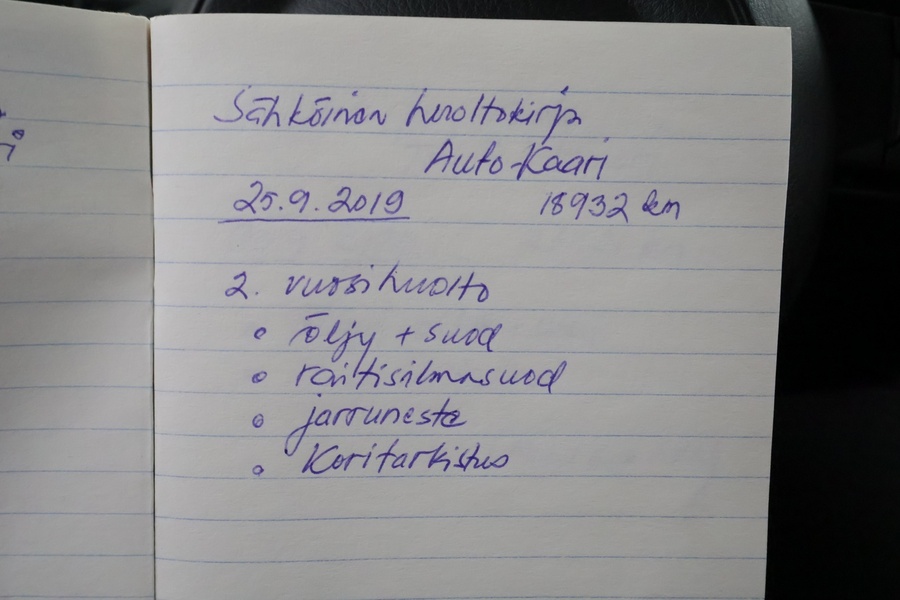 Sähköinen huoltokirja
Auto-Kaari
25.9.2019 18932 km
2. vuosihuolto
öljy + suod
raitisilmasuod
jarruneste
Koritarkistus